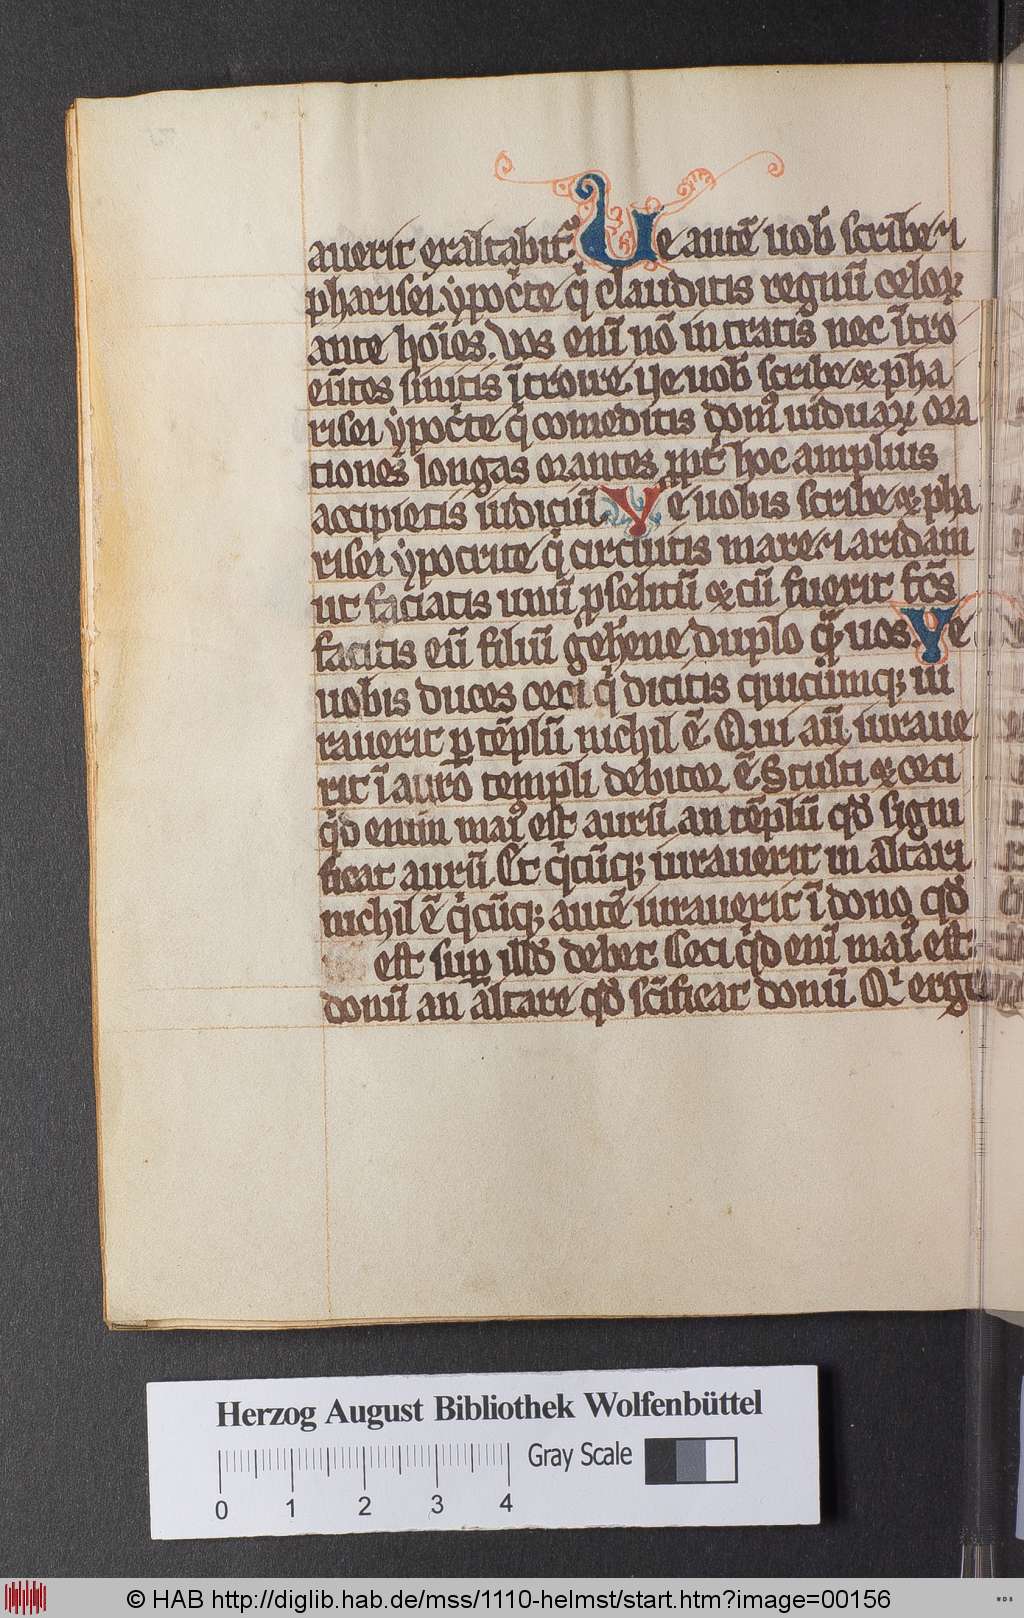 auerit exaltabit᷑. Ue autē uob̄ scribe ⁊
pharisei ẏpoc̄te qͥ clauditis regnū celoꝝ
ante hoīes. Vos enī nō intratis nec ītro
eūtes sinitis ītroire. Ue uob̄ scribe ⁊ pha
risei ẏpoc̄te qͥ comeditis domꝰ uiduaꝝ ora
tiones longas orantes ꝓpt̄ hoc amplius
accipietis iudiciū. Ve uobis scribe ⁊ pha
risei ẏpocrite qͥ circuitis mare ⁊ aridam
ut faciatis unū ꝓselitū ⁊ cū fuerit fc̄s
facitis eū filiū gehene duplo qͣ̄ uos. Ve
uobis duces ceci qͥ dicitis quicūmqꝫ iu
rauerit ꝑ tēplū nichil ē. Qui aū. iuraue
rit ī auro templi debitor ē. Stulti ⁊ ceci
qͥd enim maiꝰ est aurū. an tēplū qd̄ signi
ficat aurū. Et qͥcūqꝫ iurauerit in altari
nichil ē qͥcūqꝫ autē iurauerit ī dono qd̄
est suꝑ illd̄ debet. Ceci qͥd enī maiꝰ est
donū an altare qd̄ sc̄ificat donū. Qͥ ergo
Herzog August Bibliothek Wolfenbüttel
Gray Scale
0 1 2 3 4
© HAB http://diglib.hab.de/mss/1110-helmst/start.htm?image=00156